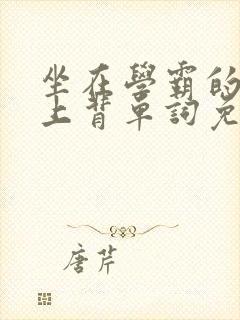 坐在學霸的
上背單詞免
唐芹